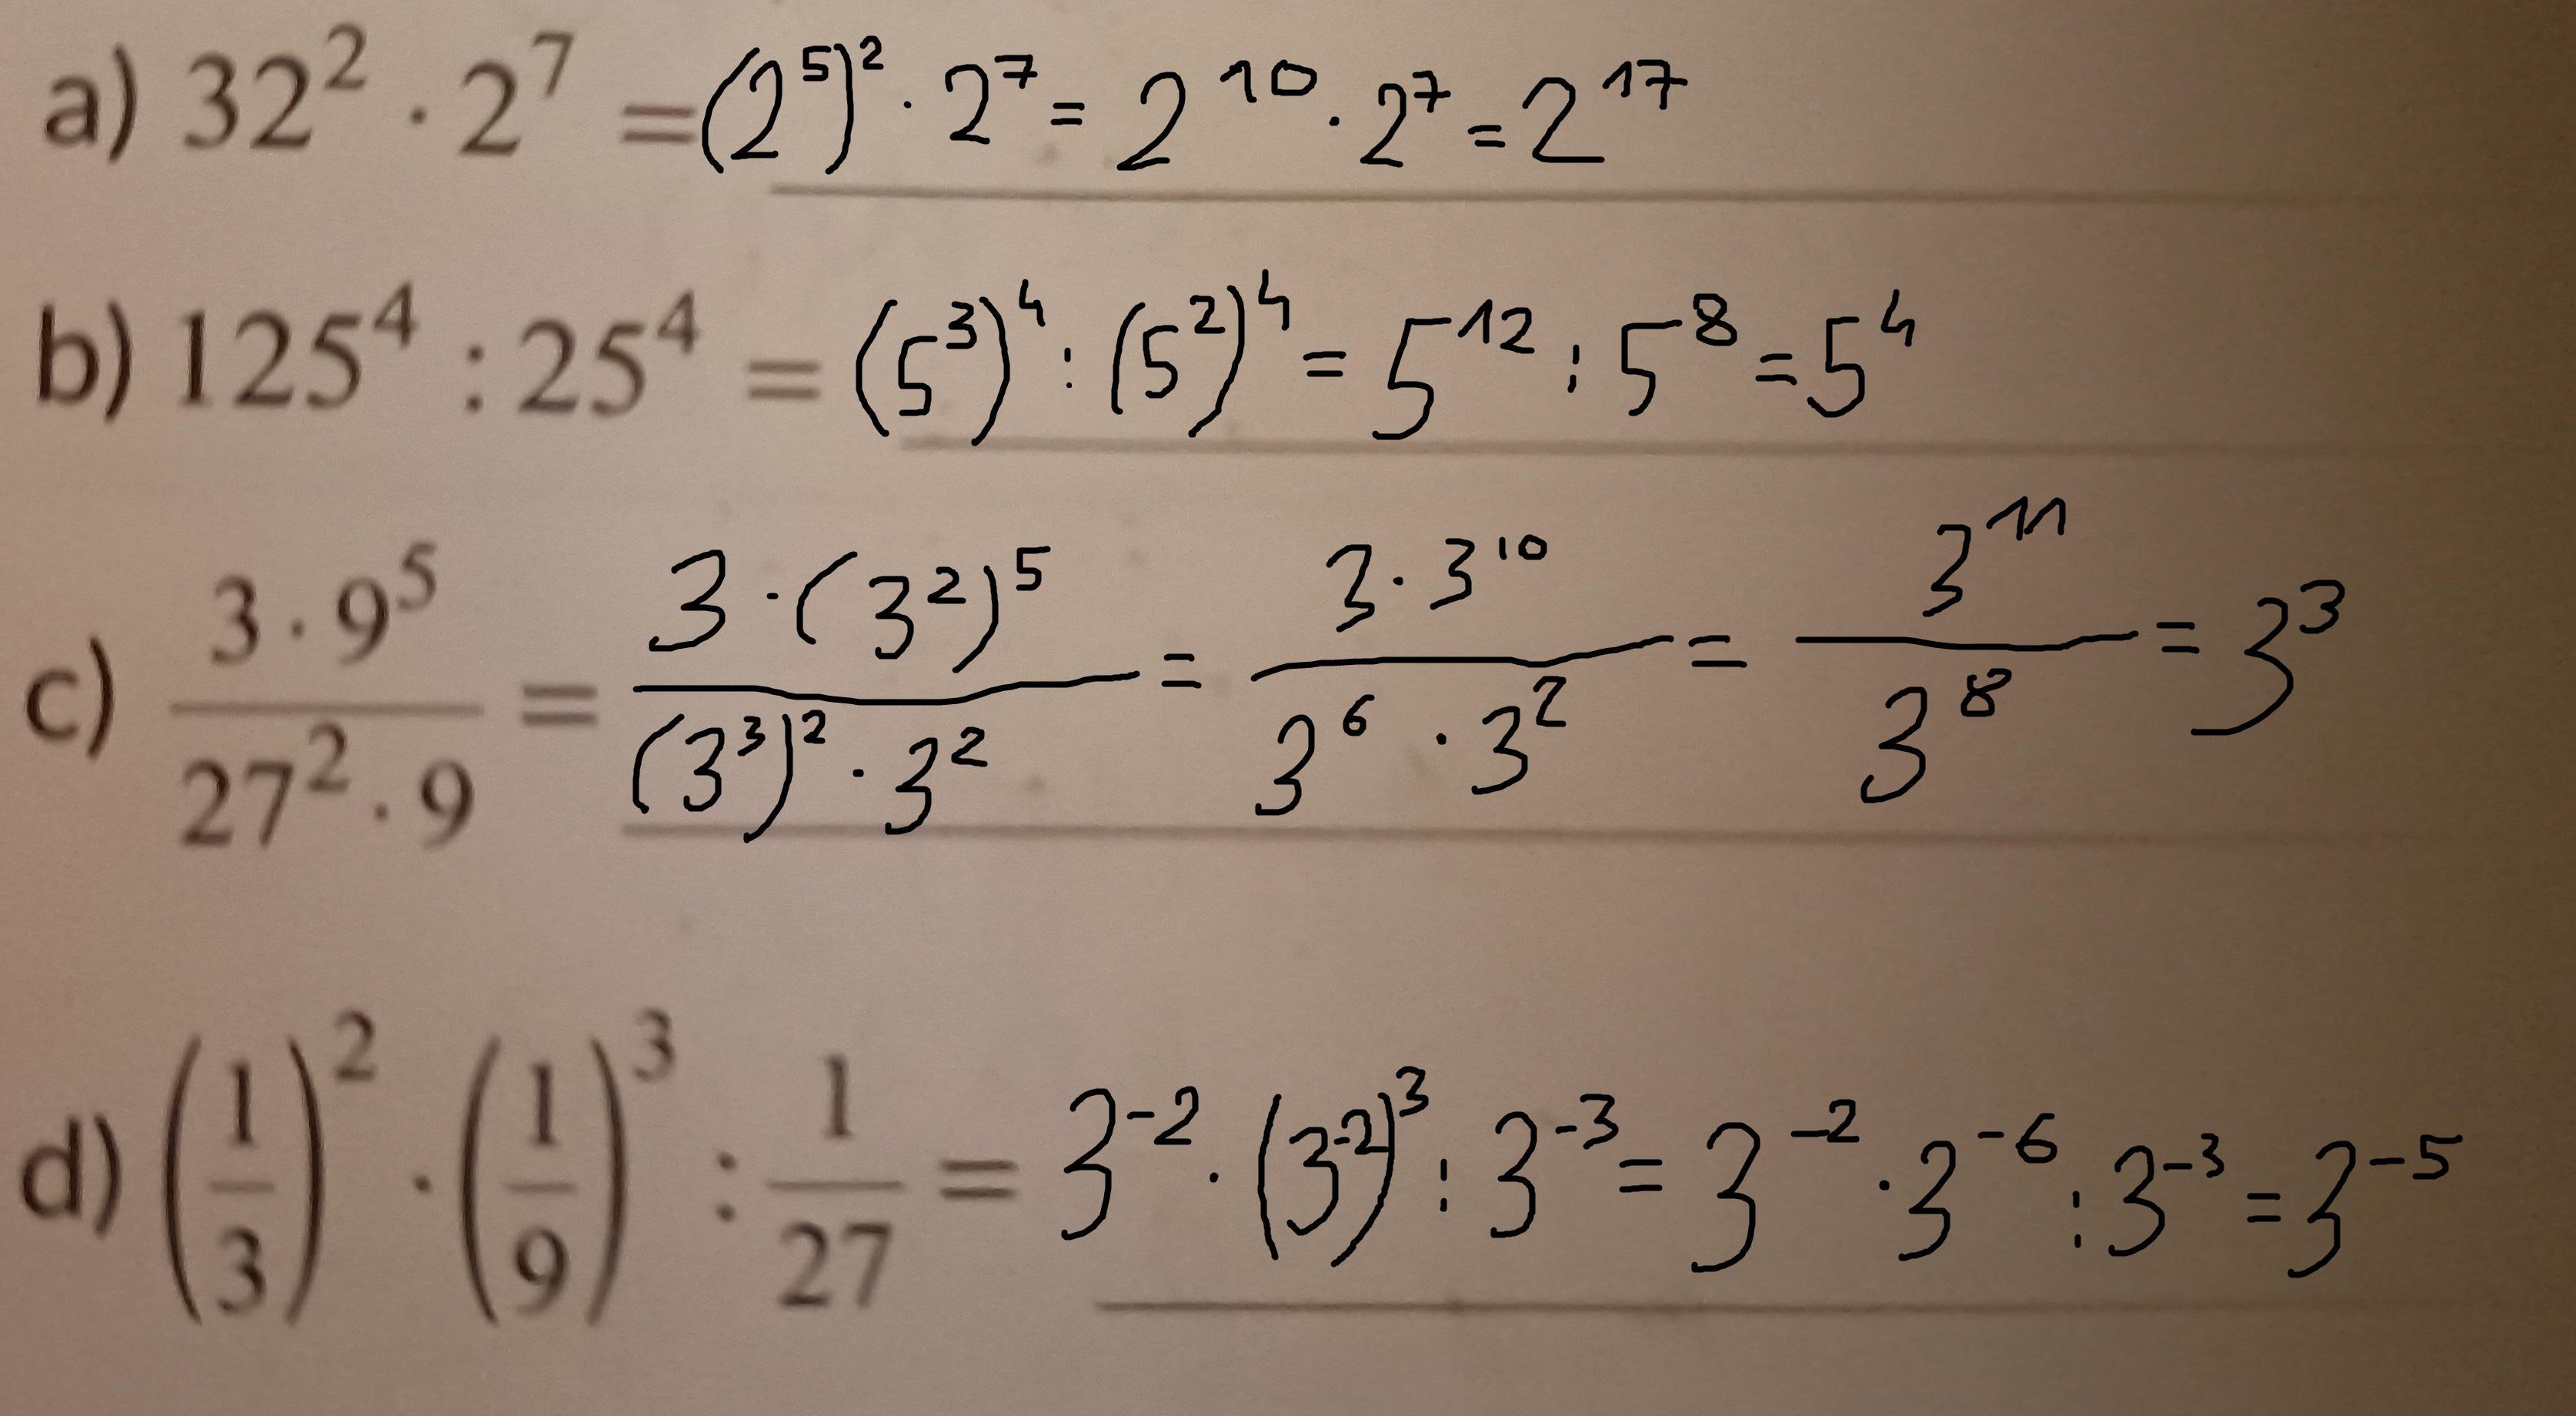 a) 32² · 2⁷ = (2⁵)² · 2⁷ = 2¹⁰ · 2⁷ = 2¹⁷
b) 125⁴ : 25⁴ = (5³)⁴ : (5²)⁴ = 5¹² : 5⁸ = 5⁴
c) (3 · 9⁵)/(27² · 9) = (3 · (3²)⁵)/((3³)² · 3²) = (3 · 3¹⁰)/(3⁶ · 3²) = 3¹¹/3⁸ = 3³
d) (1/3)² · (1/9)³ : 1/27 = 3⁻² · (3⁻²)³ : 3⁻³ = 3⁻² · 3⁻⁶ : 3⁻³ = 3⁻⁵